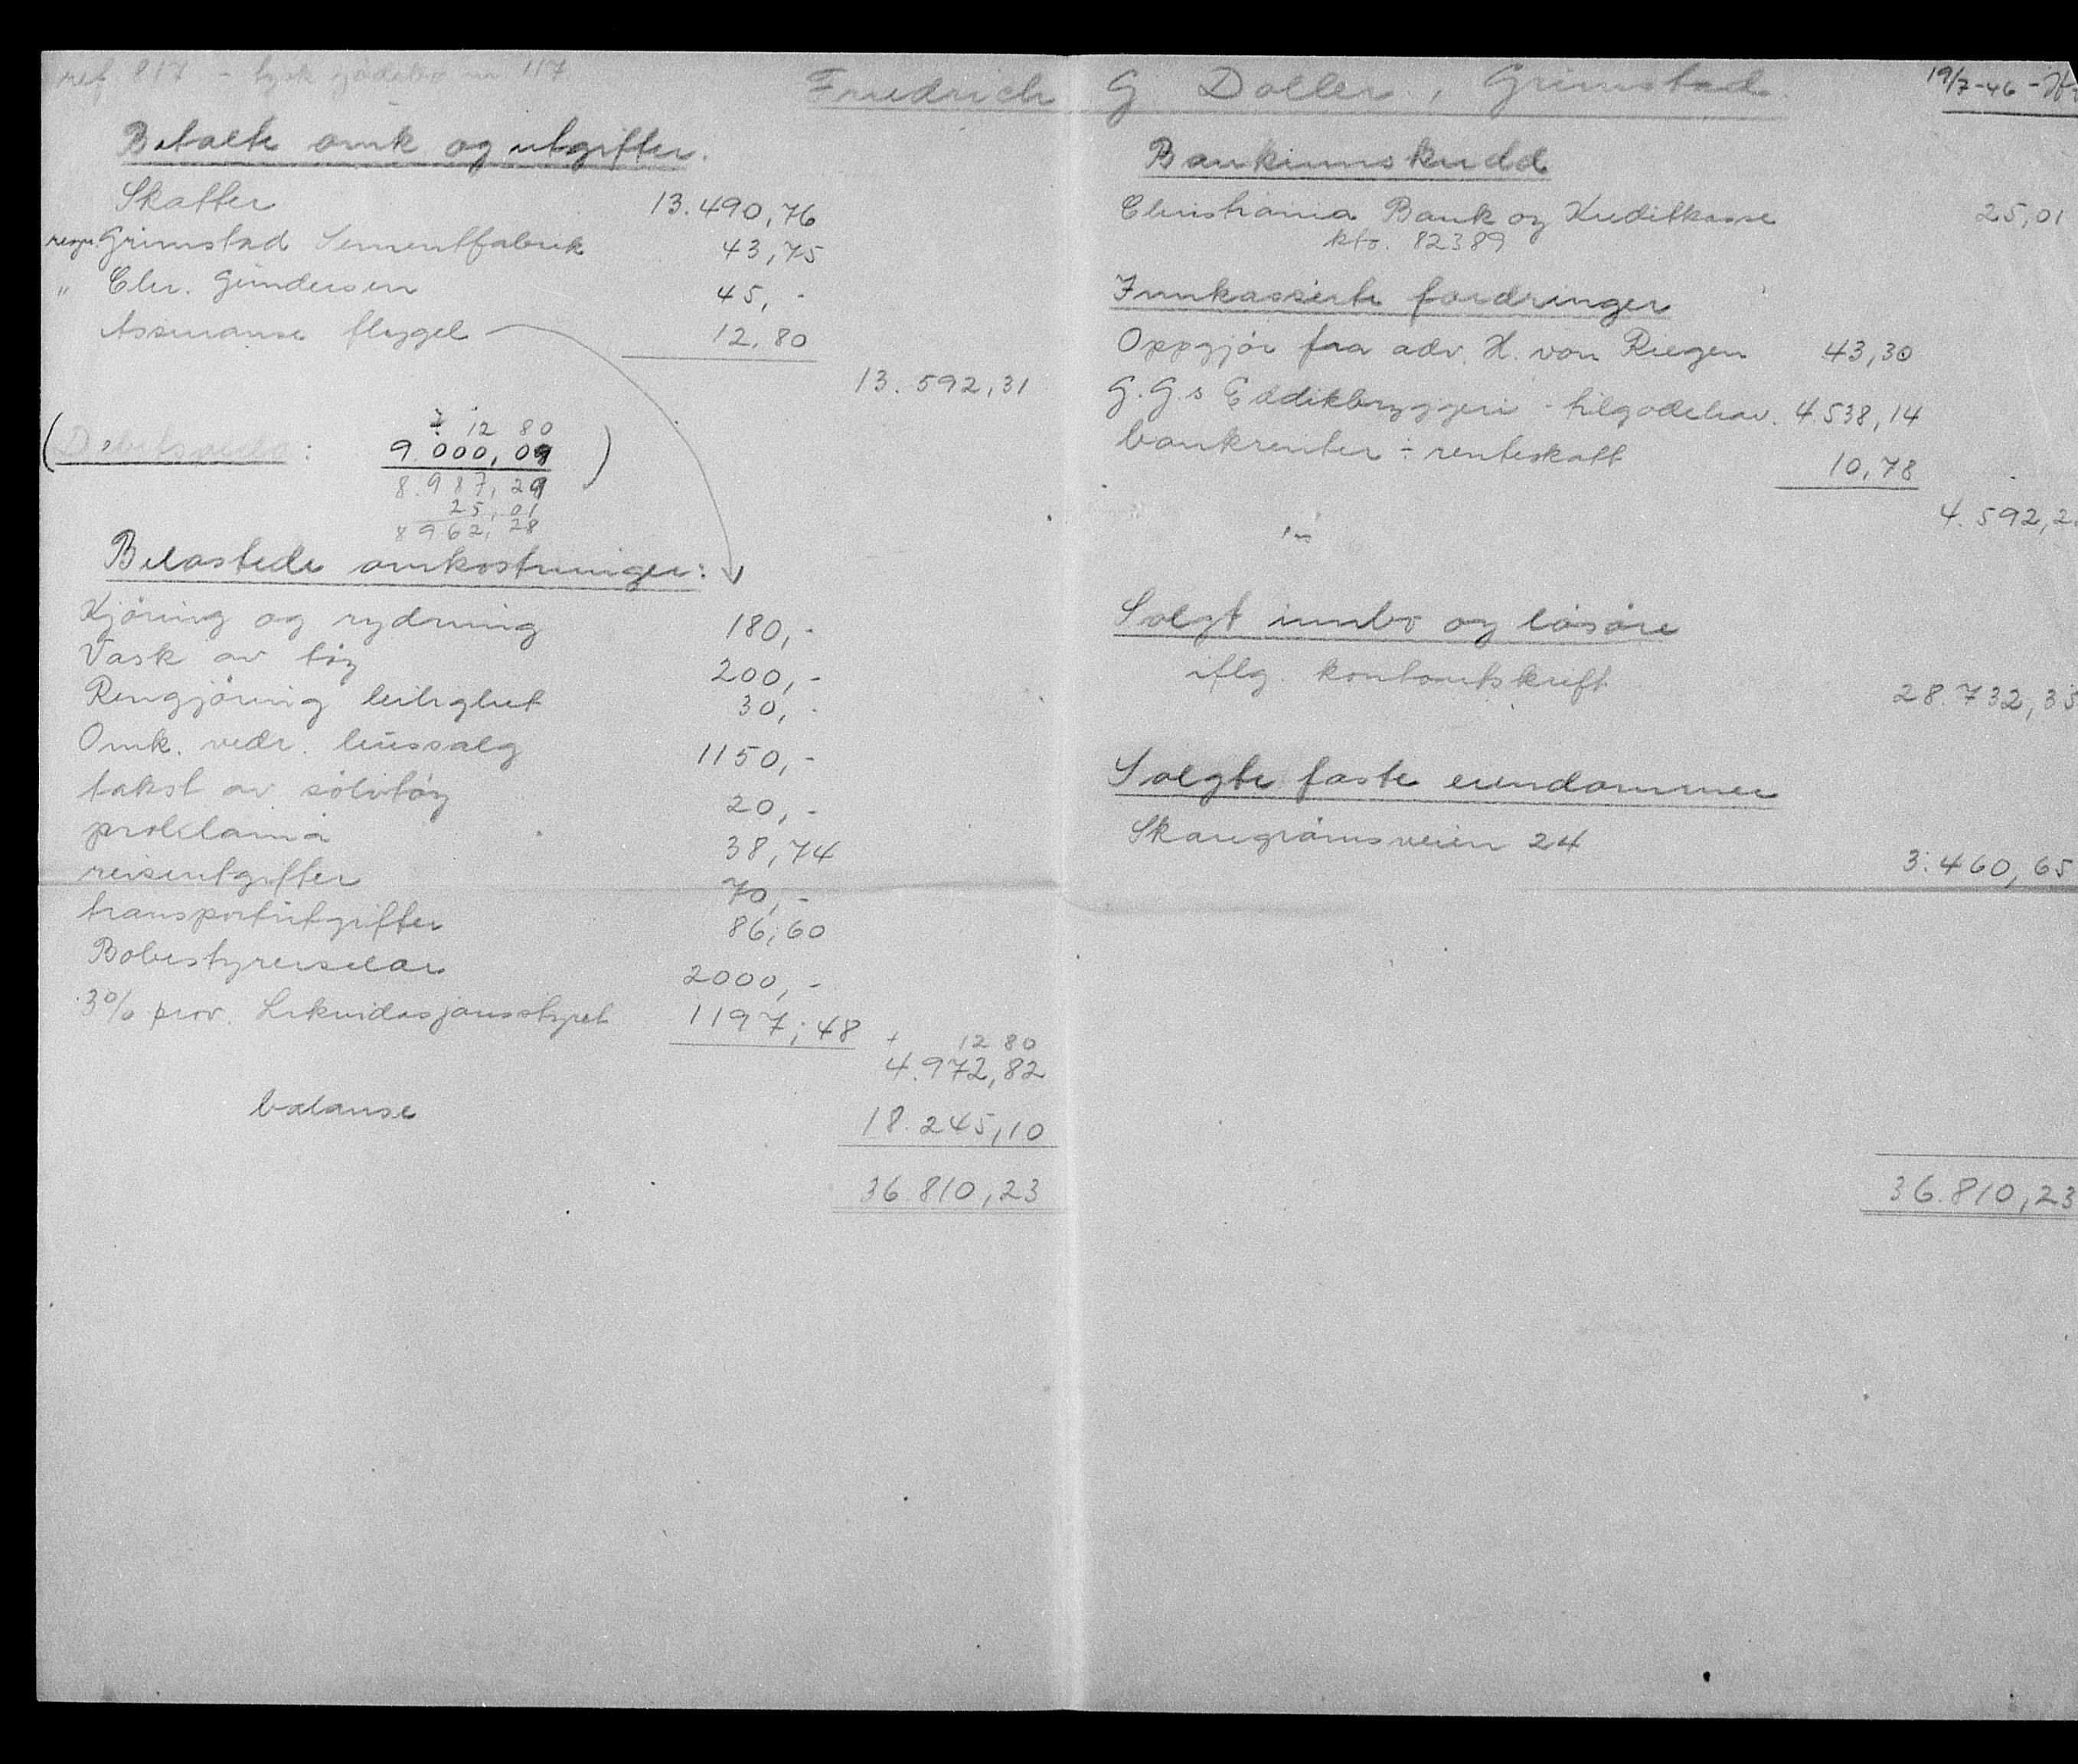 ref. 817 - tysk jødebo nr. 117
Friedrich G. Doller, Grimstad.
19/7-46
Betalte omk og utgifter.
Skatter 13.490,76
regn. Grimstad Sementfabrik 43,75
" Chr. Gundersen 45,-
Assuranse flygel 12.80
13.592,31
(Debetsaldo: 9.000,09)
÷ 12 80
8.987,29
25,01
8962,28
Belastede omkostninger:
Kjöring og rydning 180,-
Vask av töy 200,-
Rengjöring leilighet 30,-
Omk. vedr. hussalg 1150,-
takst av sölvtöy 20,-
proklama 38,74
reiseutgifter 70,-
transportutgifter 86,60
Bobestyrersalær 2000,-
3% prov. Likvidasjonsstyret 1197,48
+ 12 80
4.972,82
balanse 18.245,10
36.810,23
Bankinnskudd
Christiania Bank og Kreditkasse 25,01
kto. 82389
Innkasserte fordringer
Oppgjör fra adv. H. von Krogen 43,30
G.G.s Eddikbryggeri - tilgodehav. 4.538,14
bankrenter ÷ renteskatt 10,78
4.592,2
Solgt innbo og lösöre
iflg. kontoutskrift 28.732,35
Solgte faste eiendommer
Skaugrömsveien 24 3.460,65
36.810,23